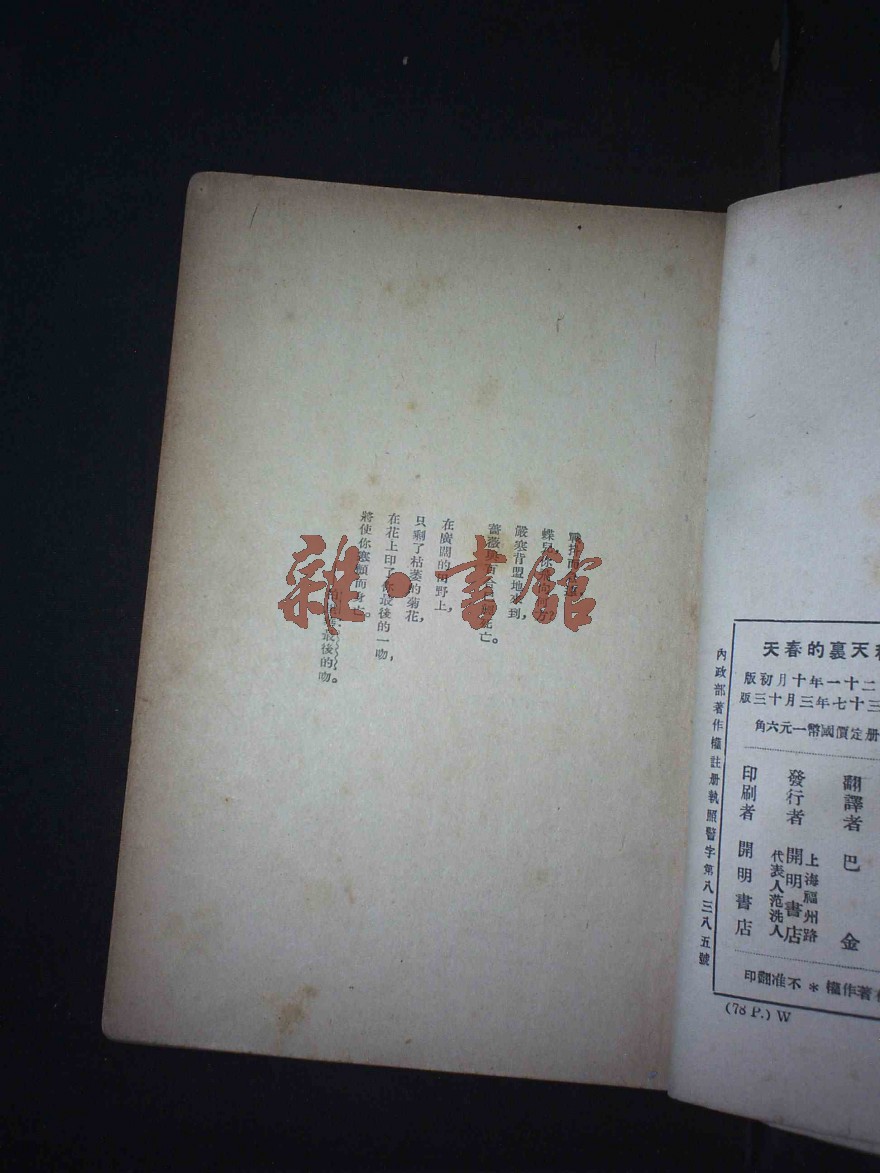 戰抖
蝶兒你
嚴寒背盟地來到，
薔薇 百合 死亡。
在廣闊的田野上，
只剩了枯萎的菊花，
在花上印了你最後的一吻，
將使你寒顫而身亡。
最後的吻。
雜·書館
天裏的春天
二十一年十月初版
三十七年三月十三版
册定價國幣一元六角
翻譯者 巴金
發行者 開明書店
上海福州路
代表人范洗人
印刷者 開明書店
著作權＊不准翻印
內政部著作權註册執照警字第八三八五號
(78 P.) W